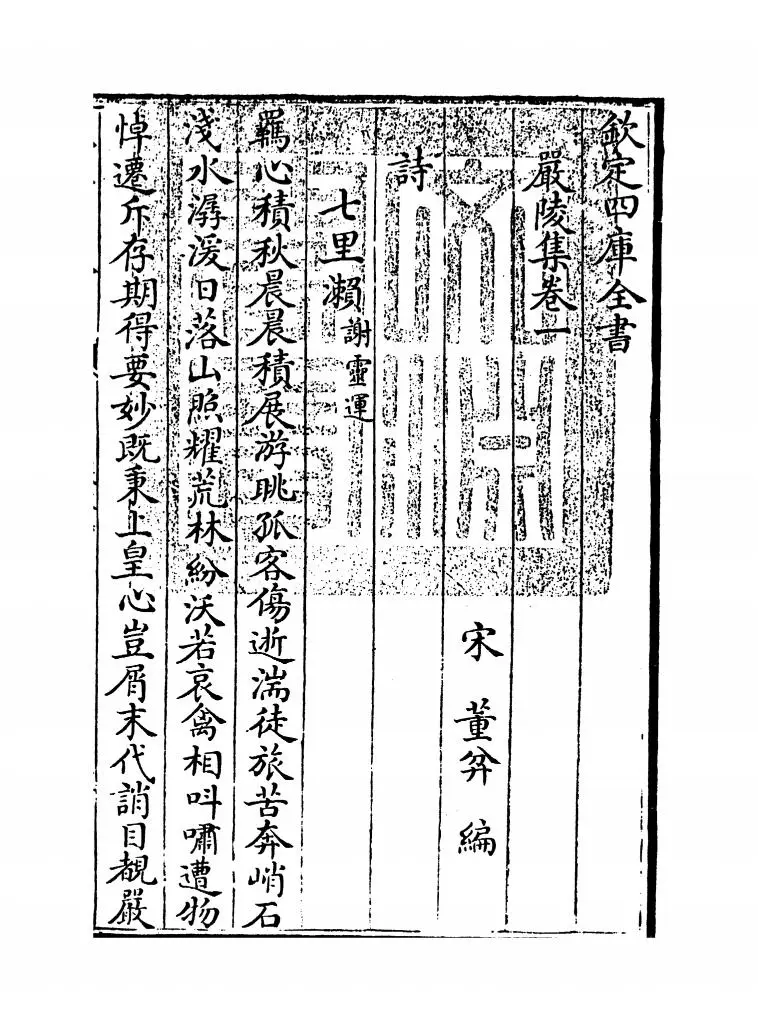 欽定四庫全書
嚴陵集卷一
宋 董弅 編
詩
七里瀨 謝靈運
羈心積秋晨晨積展游眺孤客傷逝湍徒旅苦奔峭石
淺水潺湲日落山照耀荒林紛沃若哀禽相叫嘯遭物
悼遷斥存期得要妙既秉上皇心豈屑末代誚目覩嚴